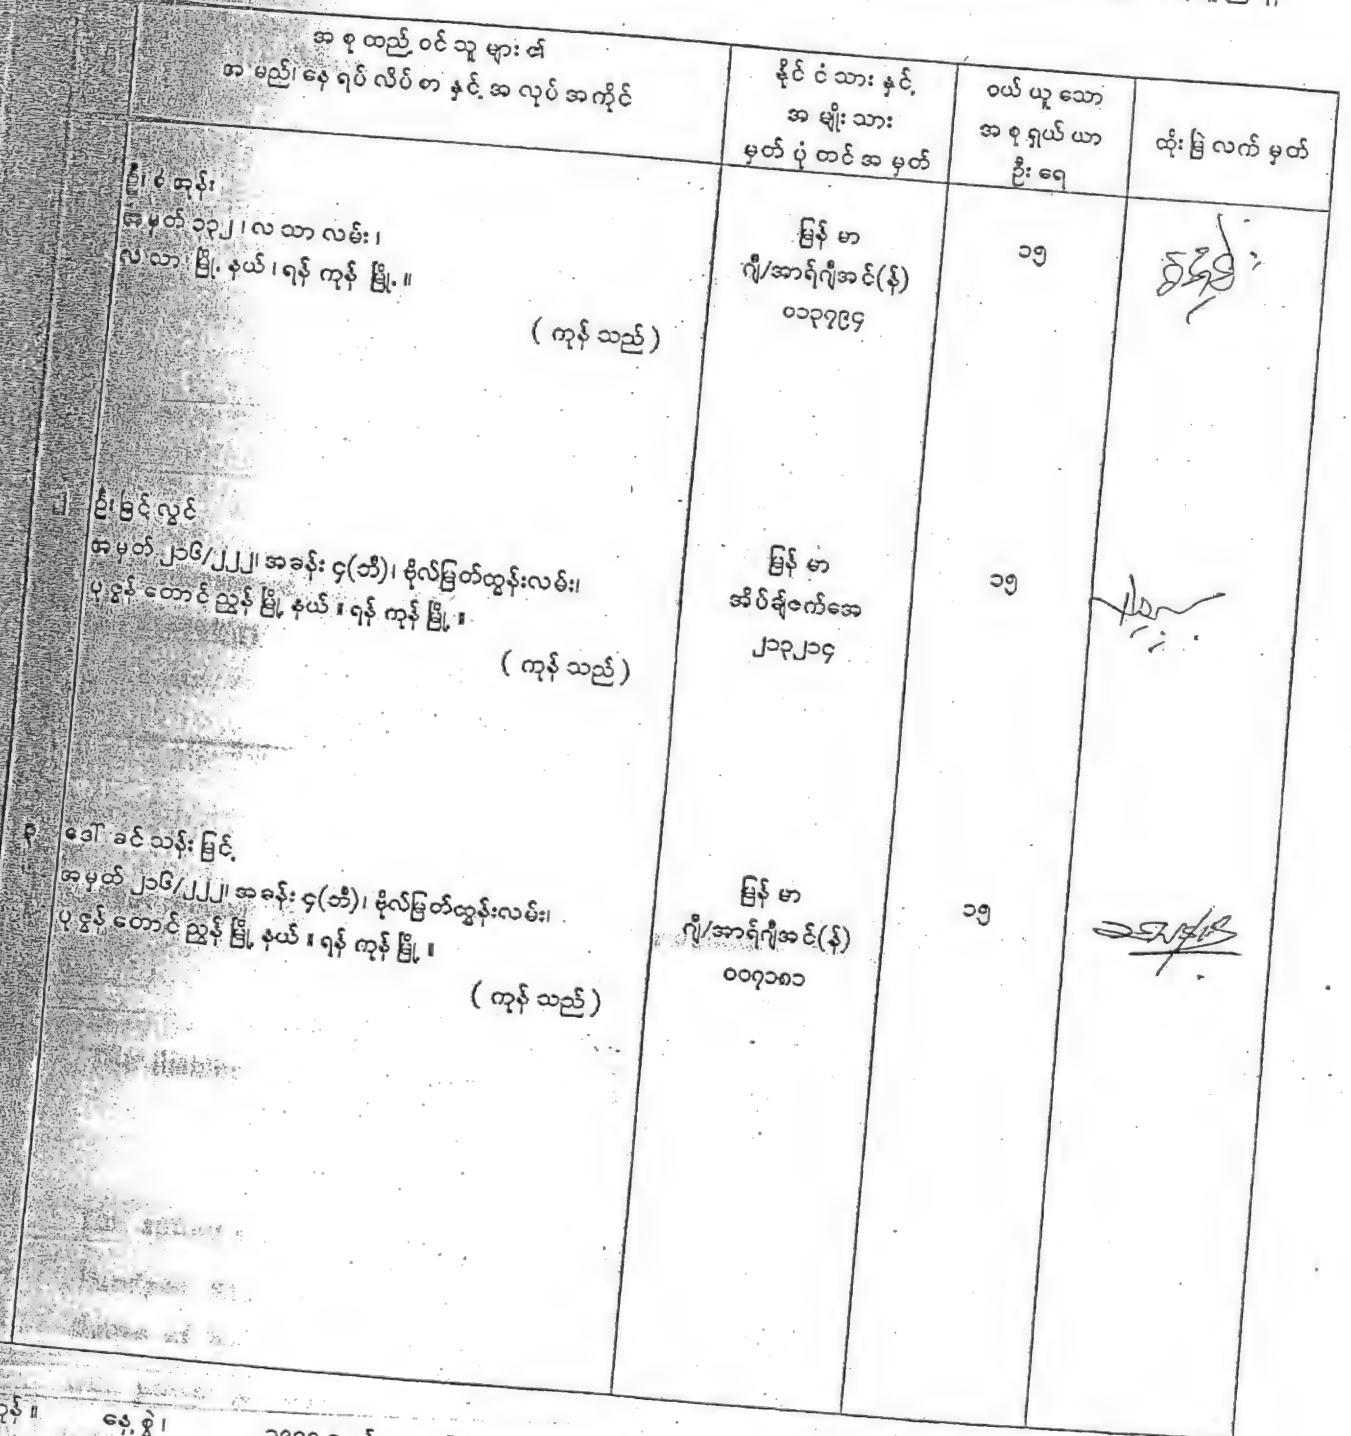 အစုထည့်ဝင်သူများ၏
အမည်၊ နေရပ်လိပ်စာနှင့် အလုပ်အကိုင်
နိုင်ငံသားနှင့်
အမျိုးသား
မှတ်ပုံတင်အမှတ်
ဝယ်ယူသော
အစုရှယ်ယာ
ဦးရေ
ထိုးမြဲလက်မှတ်
အမှတ် ၁၃၂၊ လသာလမ်း၊
လသာမြို့နယ်၊ ရန်ကုန်မြို့။
(ကုန်သည်)
မြန်မာ
ဂျီ/အာရ်ဂျီအင်(န်)
၀၁၃၇၉၄
၁၅
၂ ဦးခြင့်လွင်
အမှတ် ၂၁၆/၂၂၂၊ အခန်း ၄(ဘီ)၊ ဗိုလ်မြတ်ထွန်းလမ်း၊
ပုဇွန်တောင်ညွန့်မြို့နယ်။ ရန်ကုန်မြို့။
(ကုန်သည်)
မြန်မာ
အိပ်ချ်ဇက်အေ
၂၁၃၂၁၄
၁၅
၃ ဒေါ်ခင်သန်းမြင့်
အမှတ် ၂၁၆/၂၂၂၊ အခန်း ၄(ဘီ)၊ ဗိုလ်မြတ်ထွန်းလမ်း၊
ပုဇွန်တောင်ညွန့်မြို့နယ်။ ရန်ကုန်မြို့။
(ကုန်သည်)
မြန်မာ
ဂျီ/အာရ်ဂျီအင်(န်)
၀၀၇၁၈၁
၁၅
နေ့စွဲ၊